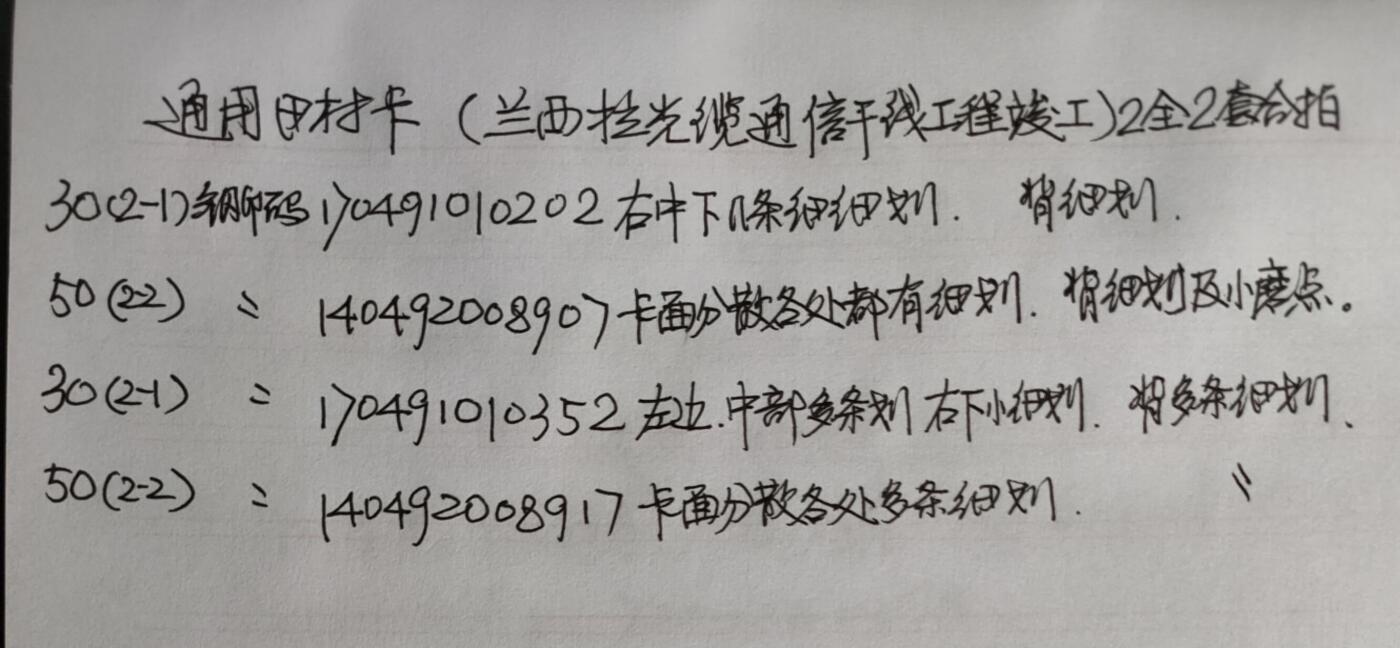 通用田村卡（兰西拉光缆通信干线工程竣工）2全2套合拍
30(2-1)钢印码170491010202右中下几条细细划. 背细划.
50(2-2) 〃 140492008907卡面分散各处都有细划. 背细划及小磨点。
30(2-1) 〃 170491010352左边.中部多条划右下小细划. 背多条细划、
50(2-2) 〃 140492008917卡面分散各处多条细划. 〃